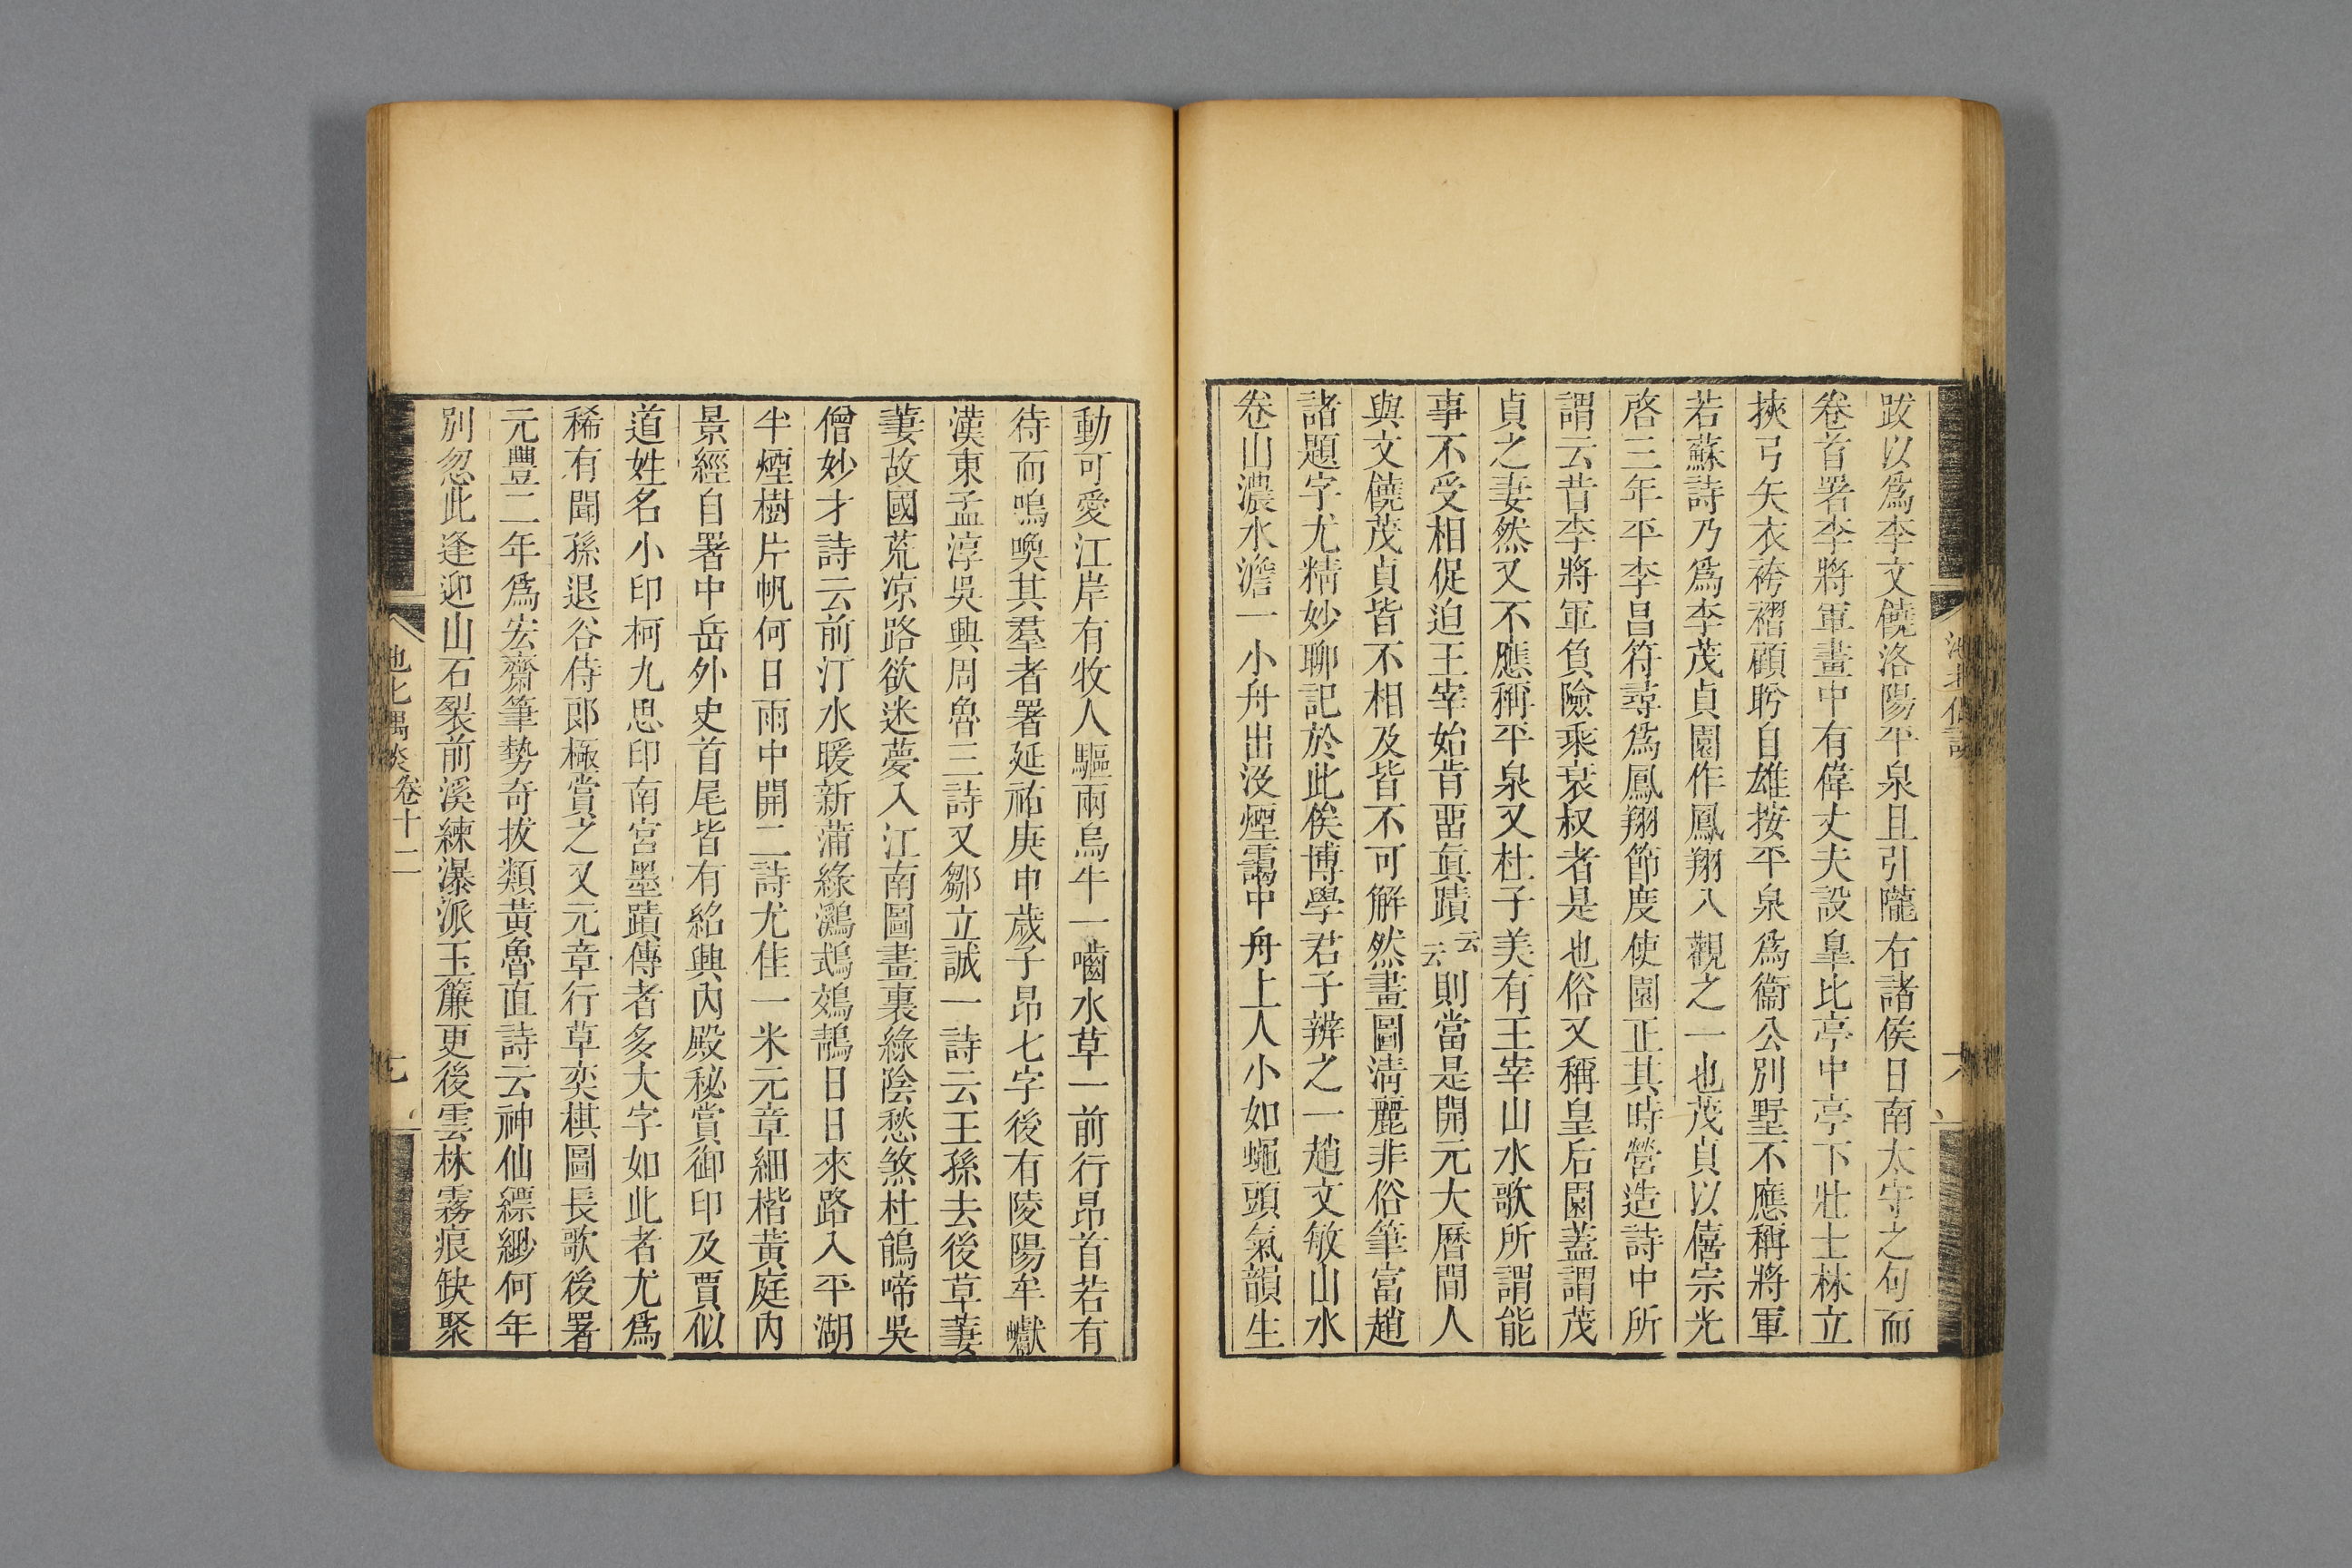 跋以爲李文饒洛陽平泉且引隴右諸侯日南太守之句而
卷首署李將軍畫中有偉丈夫設皐比亭中亭下壯士林立
挾弓矢衣袴褶顧眄自雄按平泉爲衞公別墅不應稱將軍
若蘇詩乃爲李茂貞園作鳳翔八觀之一也茂貞以僖宗光
啓三年平李昌符尋爲鳳翔節度使園正其時營造詩中所
謂云昔李將軍負險乘衰叔者是也俗又稱皇后園蓋謂茂
貞之妻然又不應稱平泉又杜子美有王宰山水歌所謂能
事不受相促迫王宰始肯畱眞蹟云云則當是開元大曆間人
與文饒茂貞皆不相及皆不可解然畫圖淸麗非俗筆富趙
諸題字尤精妙聊記於此俟博學君子辨之一趙文敏山水
卷山濃水澹一小舟出沒煙靄中舟上人小如蠅頭氣韻生
動可愛江岸有牧人驅兩烏牛一嚙水草一前行昂首若有
待而鳴喚其羣者署延祐庚申歲子昂七字後有陵陽牟巘
漢東孟淳吳興周魯三詩又鄒立誠一詩云王孫去後草萋
萋故國荒凉路欲迷夢入江南圖畫裏綠陰愁煞杜鵑啼吳
僧妙才詩云前汀水暖新蒲綠鸂鵡鵁鶄日日來路入平湖
半煙樹片帆何日雨中開二詩尤佳一米元章細楷黃庭內
景經自署中岳外史首尾皆有紹興內殿秘賞御印及賈似
道姓名小印柯九思印南宮墨蹟傳者多大字如此者尤爲
稀有聞孫退谷侍郎極賞之又元章行草奕棋圖長歌後署
元豐二年爲宏齋筆勢奇拔類黃魯直詩云神仙縹緲何年
別忽此逢迎山石裂前溪練瀑派玉簾更後雲林霧痕缺聚
池北偶談 卷十二